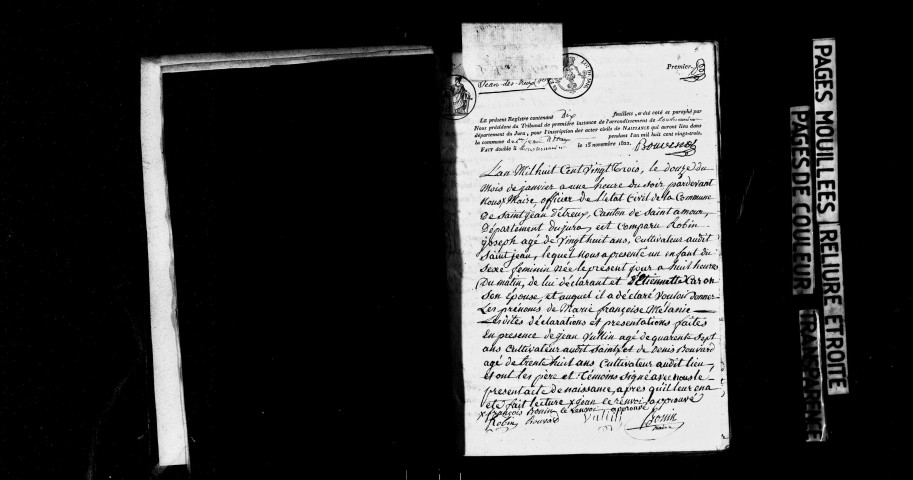 Premier.
Jean-des-treux
Le présent Registre contenant dix feuillets, a été coté et paraphé par
Nous président du Tribunal de première instance de l'arrondissement de Lonslesaunier
département du Jura, pour l'inscription des actes civils de NAISSANCE qui auront lieu dans
la commune de St jean d'étreux pendant l'an mil huit cent vingt-trois.
FAIT double à Lonslesaunier le 15 novembre 1822.
L'an Mil huit Cent vingt trois, le douze du
Mois de janvier a une heure du soir pardevant
Nous x Maire, officier de L'état Civil de la Commune
De Saint jean d'étreux, Canton de Saint amour,
Département du jura, est comparu Robin
joseph agé de vingt huit ans, cultivateur audit
Saint jean, lequel Nous a presenté un enfant du
Sexe feminin née le present jour a huit heures
Du matin, de lui déclarant et d'Etiennette
Son épouse, et auquel il a déclaré vouloir Donner
Les prénoms de Marie françoise Mélanie
Lesdites déclarations et presentations faites
En presence de jean Vullin agé de quarente sept
ans cultivateur audit Saint j et de Denis Bouvard
agé de trente huit ans Cultivateur audit lieu,
Et ont les père et Témoins signé avec nous le
present acte de naissance, apres qu'il leur en a
été fait lecture x jean le renvoi approuvé
x françois Bonin le renvoi approuvé
Robin Bouvard Vullin Bonin
PAGES MOUILLEES RELIURE ETROITE
PAGES DE COULEUR TRANSPARENCE